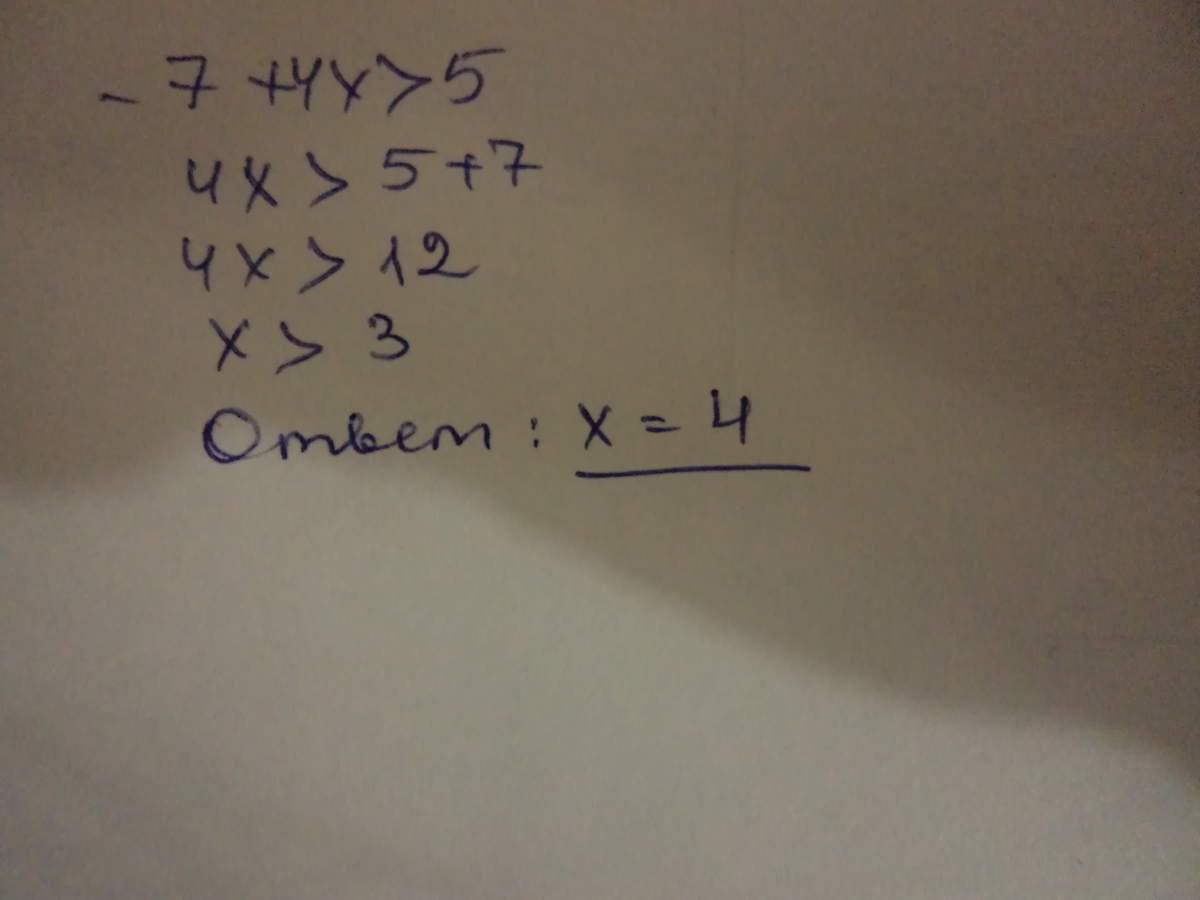 - 7 +4x>5
4x > 5+7
4x > 12
x > 3
Ответ : x = 4